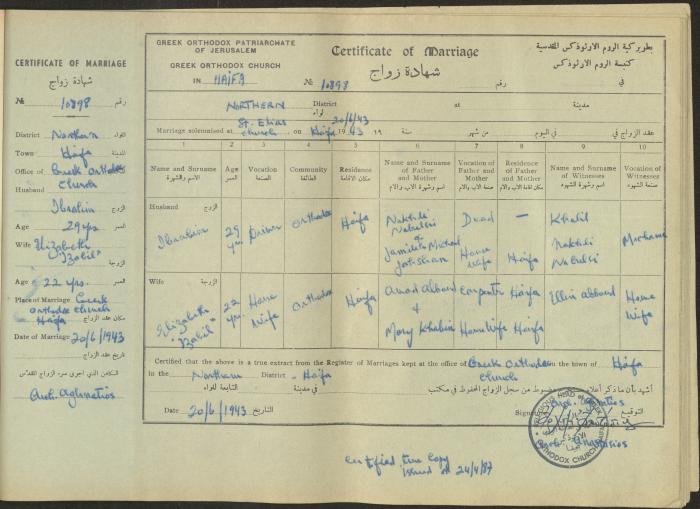 CERTIFICATE OF MARRIAGE
شهادة زواج
№ 10898 رقم
District Northern اللواء
Town Haifa المدينة
Office of Greek Orthodox
Church
Husband
Ibrahim الزوج
Age 29 yrs العمر
Wife Elizabeth
"Bahil" الزوجة
Age 22 yrs. العمر
Place of Marriage Greek
Orthodox Church
Haifa مكان عقد الزواج
Date of Marriage 20/6/1943
تاريخ عقد الزواج
الكاهن الذي اجرى سره الزواج المقدس
Arch. Aghnatios
GREEK ORTHODOX PATRIARCHATE
OF JERUSALEM
GREEK ORTHODOX CHURCH
IN HAIFA
Certificate of Marriage
شهادة زواج
№ 10898 رقم
بطريركية الروم الارثوذكس المقدسية
كنيسة الروم الارثوذكس
في
NORTHERN District لواء at مدينة
St. Elias 20/6/43
Marriage solemnised at church on Haifa 1943 19 سنة من شهر في اليوم عقد الزواج في
1 2 3 4 5 6 7 8 9 10
Name and Surname الاسم والشهرة
Age العمر
Vocation الصنعة
Community الطائفة
Residence مكان الاقامة
Name and Surname of Father and Mother اسم وشهرة الاب والام
Vocation of Father and Mother صنعة الاب والام
Residence of Father and Mother مكان اقامة الاب والام
Name and Surname of Witnesses اسم وشهرة الشهود
Vocation of Witnesses صنعة الشهود
Husband الزوج
Ibrahim 29 yrs. Driver Orthodox Haifa
Nakhli Nabulsi & Jamileh
Dead — House Wife Haifa
Khalil Nakhli Nabulsi
Wife الزوجة
Elizabeth "Bahil" 22 yrs. House Wife Orthodox Haifa
Awad Abboud & Mary Khalil
Carpenter Haifa House Wife Haifa
Ellin Abboud House Wife
Certified that the above is a true extract from the Register of Marriages kept at the office of Greek Orthodox Church in the town of Haifa
in the Northern District - Haifa
التابعة للواء في مدينة
أشهد بأن ما ذكر أعلاه من سجل الزواج المحفوظ في مكتب
Date 20/6/1943 التاريخ
Signature التوقيع
ORTHODOX CHURCH
Certified true copy
issued on 24/4/87